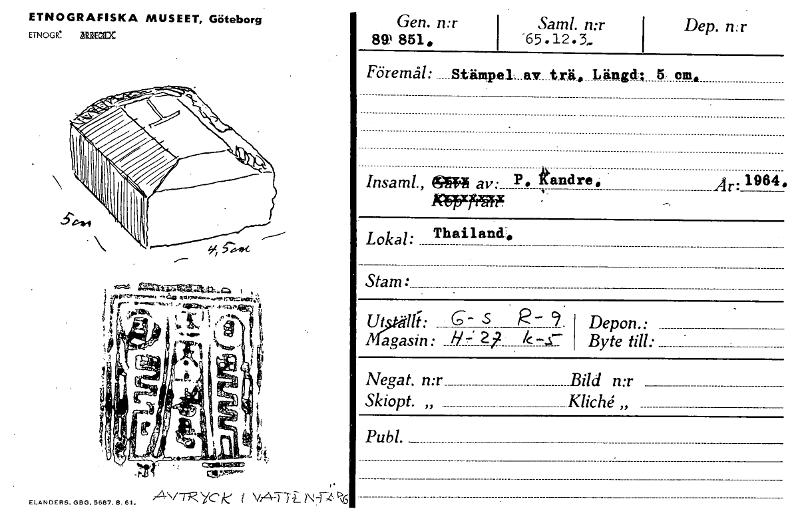 ETNOGRAFISKA MUSEET, Göteborg
ETNOGR.
5 cm
4,5 cm
AVTRYCK I VATTENFÄRG
ELANDERS. GBG. 5687. 8. 61.
Gen. n:r Saml. n:r Dep. n:r
89 851. 65.12.3.
Föremål: Stämpel av trä. Längd: 5 cm.
Insaml., Gåva av: P. Kandre. År: 1964.
Köp från:
Lokal: Thailand.
Stam:
Utställt: G-S R-9 Depon.:
Magasin: H-27 K-5 Byte till:
Negat. n:r Bild n:r
Skiopt. „ Kliché „
Publ.